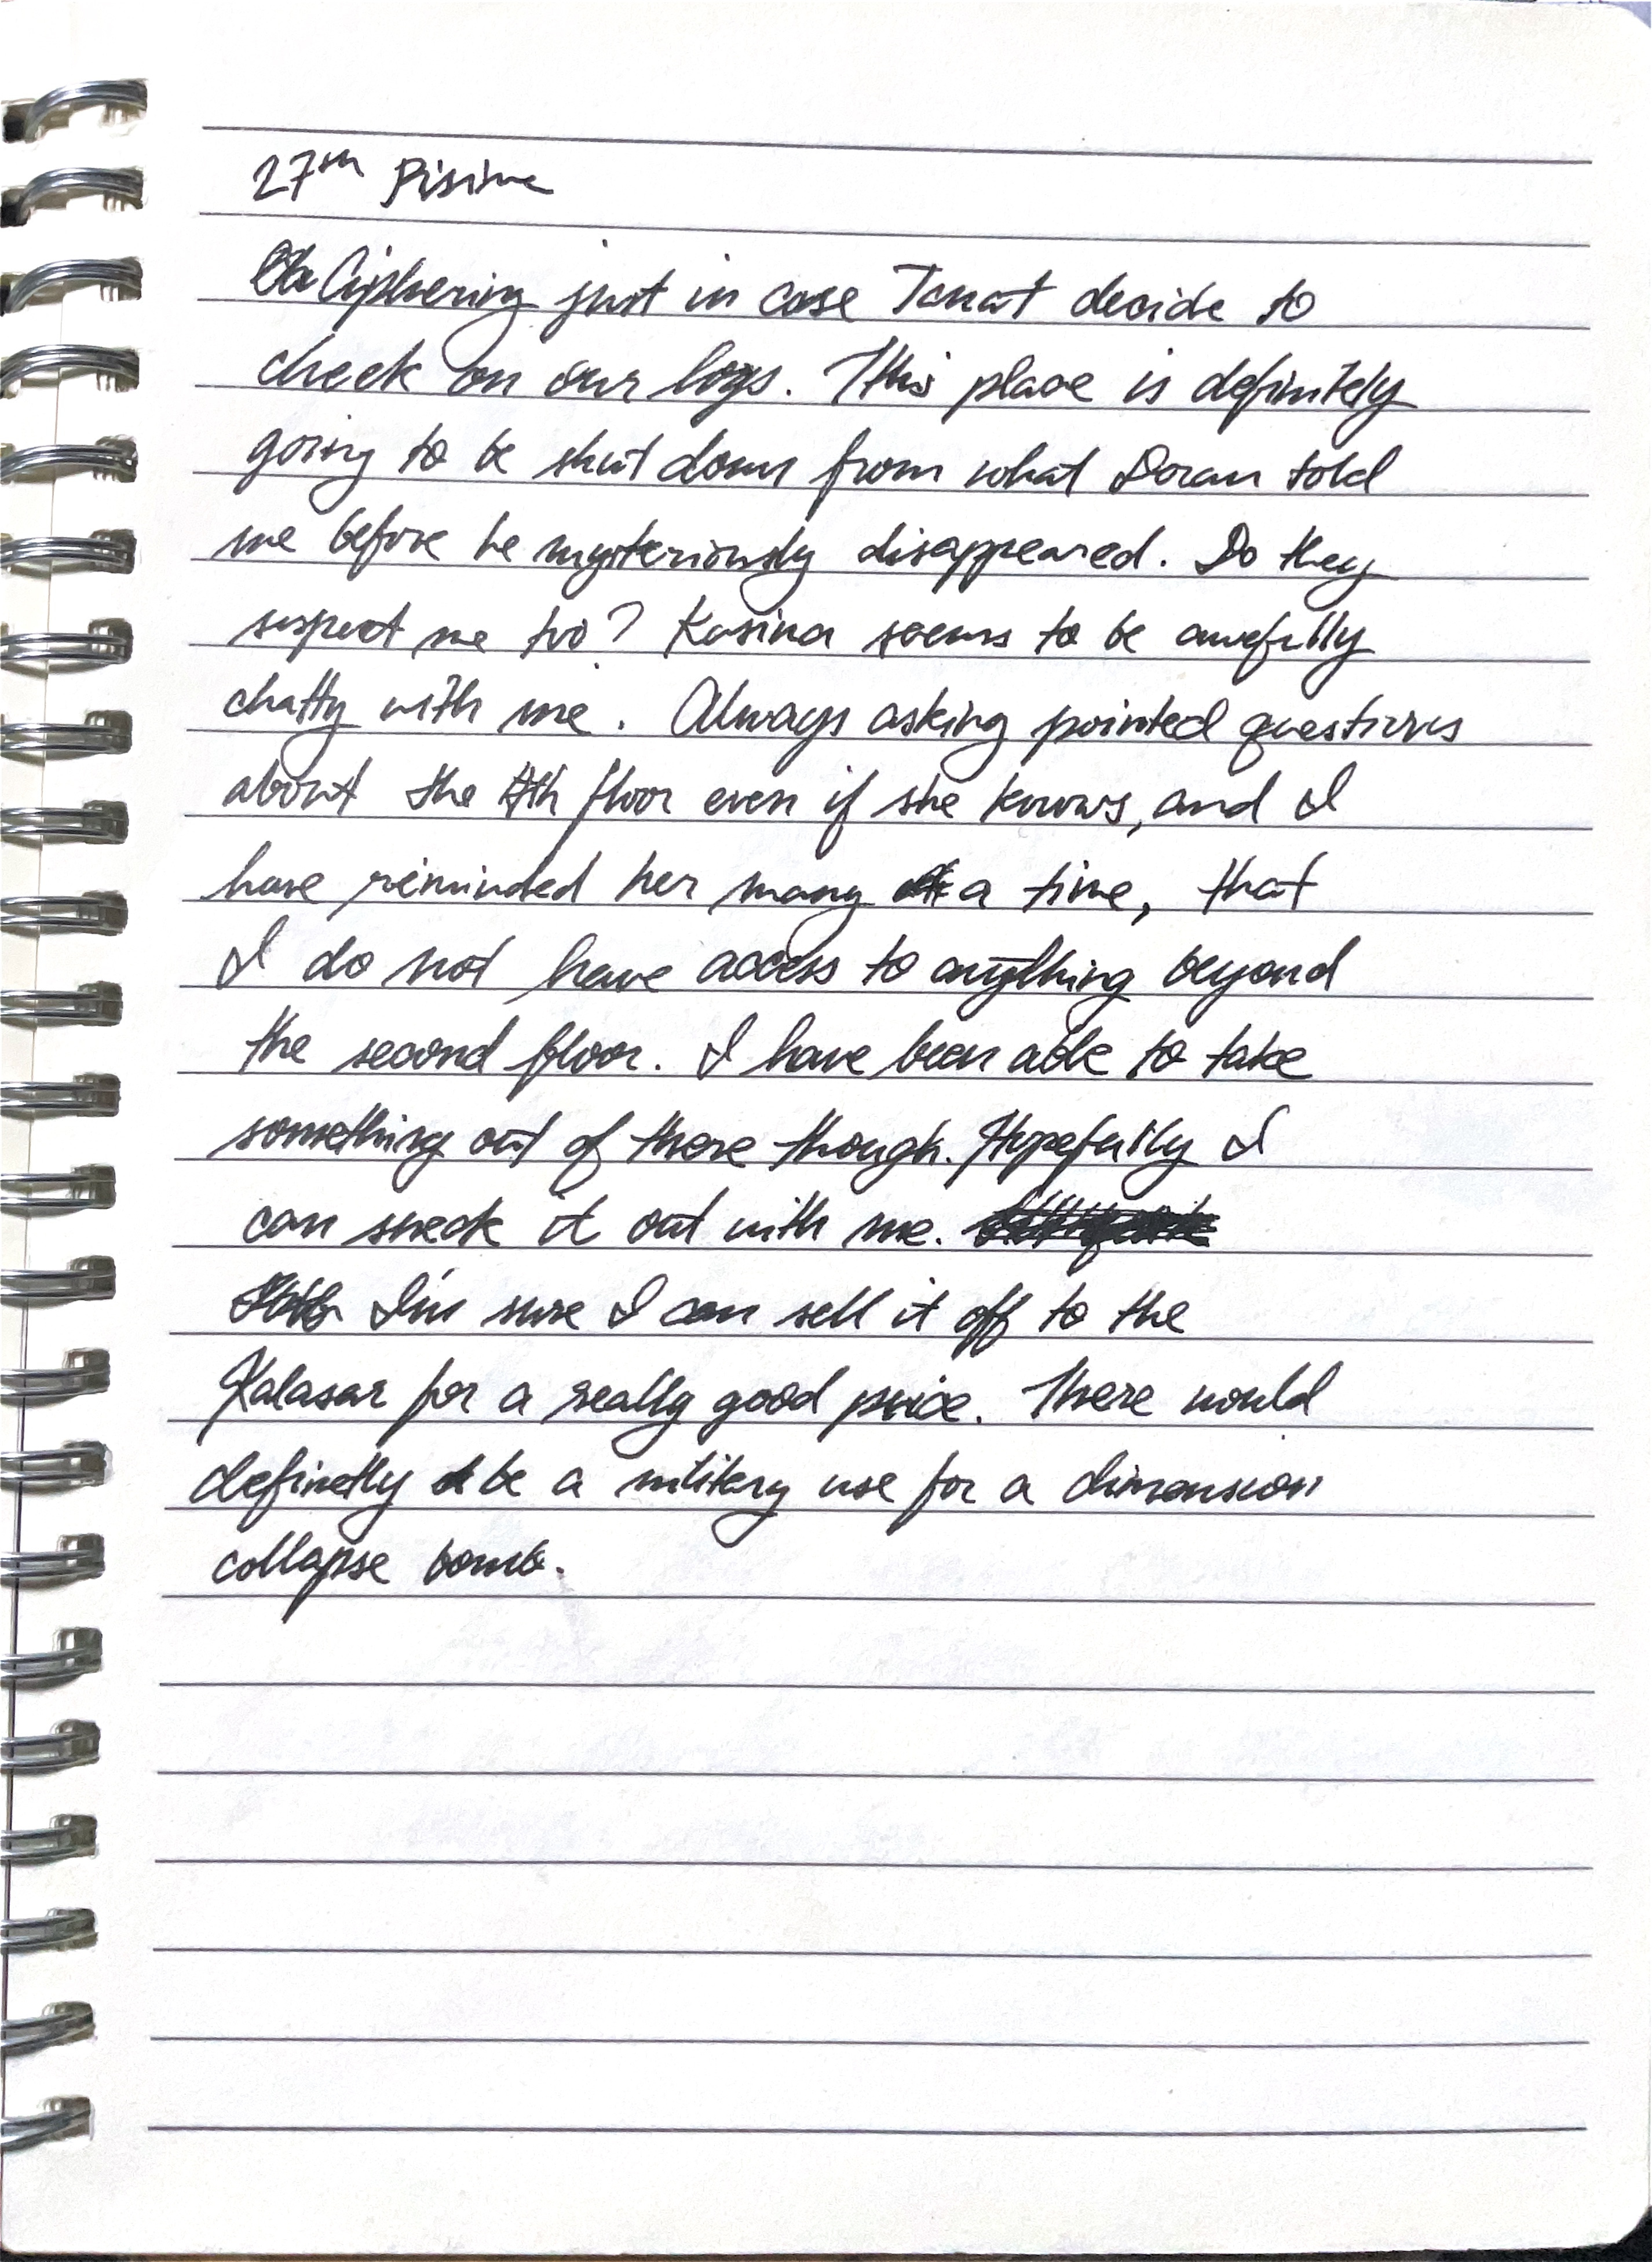 27th Pisine
Ciphering just in case Tanat decide to
check on our logs. This place is definitely
going to be shut down from what Doran told
me before he mysteriously disappeared. Do they
suspect me too? Kasina seems to be awefully
chatty with me. Always asking pointed questions
about the 4th floor even if she knows, and I
have reminded her many a time, that
I do not have access to anything beyond
the second floor. I have been able to take
something out of there though. Hopefully I
can sneak it out with me.
I'm sure I can sell it off to the
Kalasar for a really good price. There would
definetly be a military use for a dimension
collapse bomb.